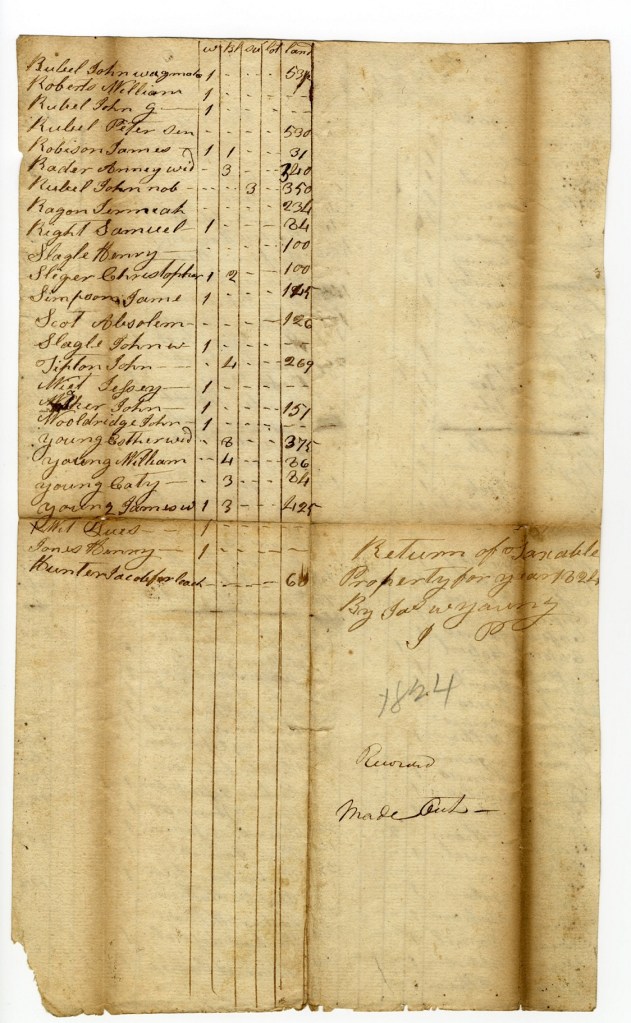 w Bl sw lot land
Rubel John wagmaker 1 - - - 53
Roberts William 1 - - - -
Rubel John G — 1 - - -
Rubel Peter Sen - - - - 530
Robison James - 1 1 - - 31
Rader Anney wid - 3 - - 340
Rubel John nob - - - 3 - 350
Ragon Jermeah - - - - 234
Right Samuel - 1 - - - 84
Slagle Henry — - - - - 100
Sliger Christopher 1 2 - - 100
Simpson Jame 1 - - - 145
Scot Absolem - - - - - 126
Slagle John w 1 - - - -
Tipton John — - 4 - - 269
Jessey — 1 - - - -
John — 1 - - - 151
Wooldridge John - 1 - - - -
young Esther wid - 8 - - 375
young William - 4 - - 86
young Caty — - 3 - - 84
young James w 1 3 - - 425
x — 1 - - -
Jones Henry — 1 - - - -
Hunter Jacob for - - - - 60
Return of Taxable
Property for year 1824
By Jas w young
J P
1824
Record
Made Out —